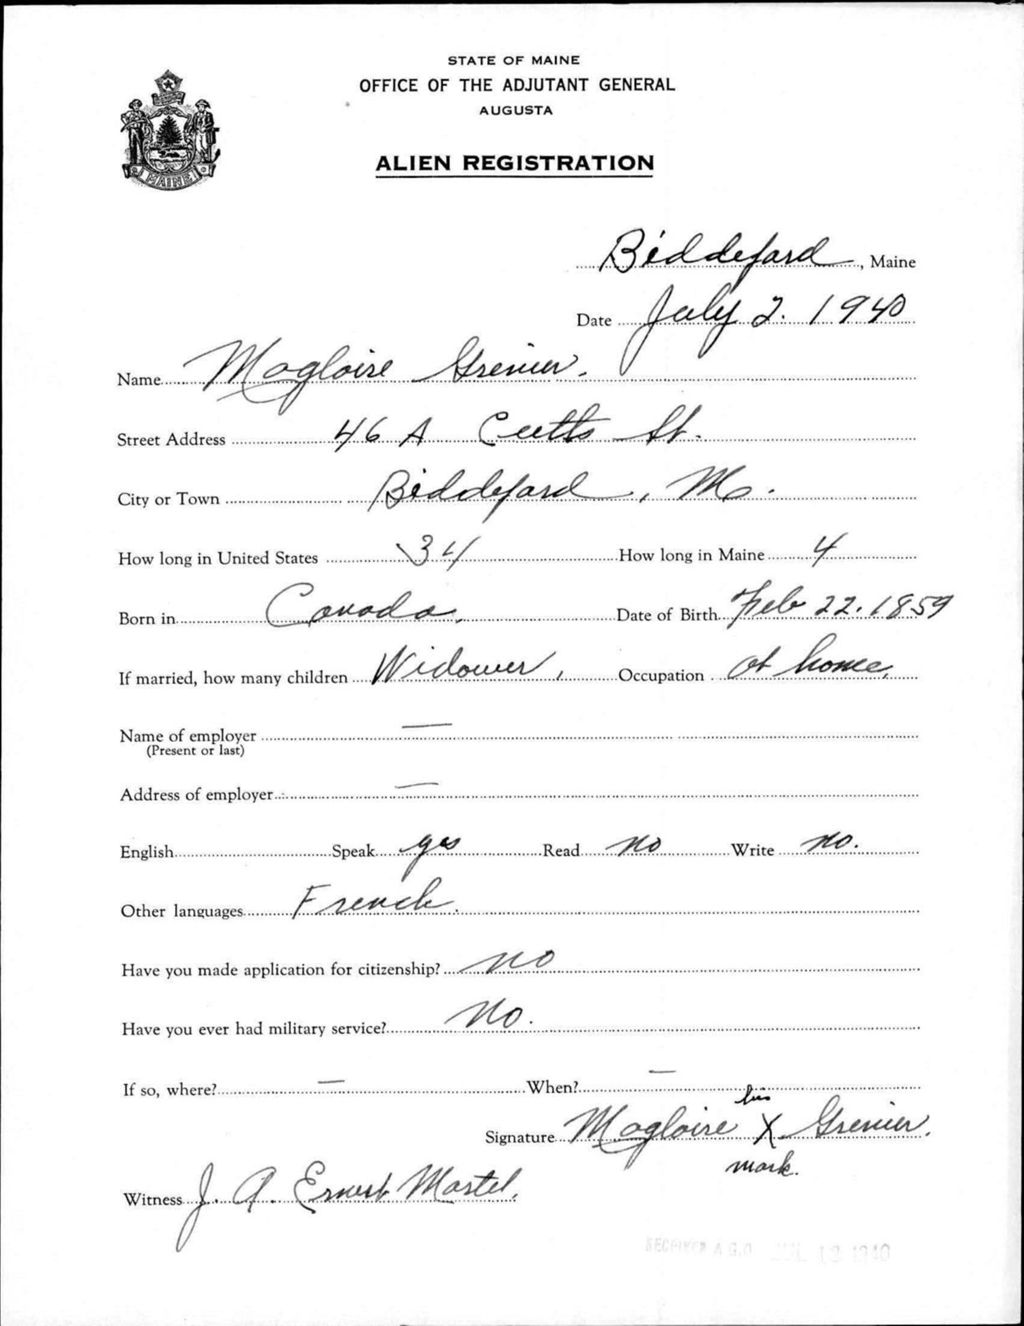 STATE OF MAINE
OFFICE OF THE ADJUTANT GENERAL
AUGUSTA
ALIEN REGISTRATION
MAINE
Biddeford, Maine
Date July 2. 1940
Name Magloire Grenier.
Street Address 46 A Cutts St.
City or Town Biddeford, Me.
How long in United States 34 How long in Maine 4
Born in Canada. Date of Birth Feb 22. 1859
If married, how many children Widower, Occupation At home.
Name of employer —
(Present or last)
Address of employer —
English Speak yes Read no Write no.
Other languages French.
Have you made application for citizenship? no
Have you ever had military service? No.
If so, where? — When? —
his
Signature Magloire X Grenier.
mark.
Witness J. A. Ernest Martel.
RECEIVED A.G.O. JUL 13 1940